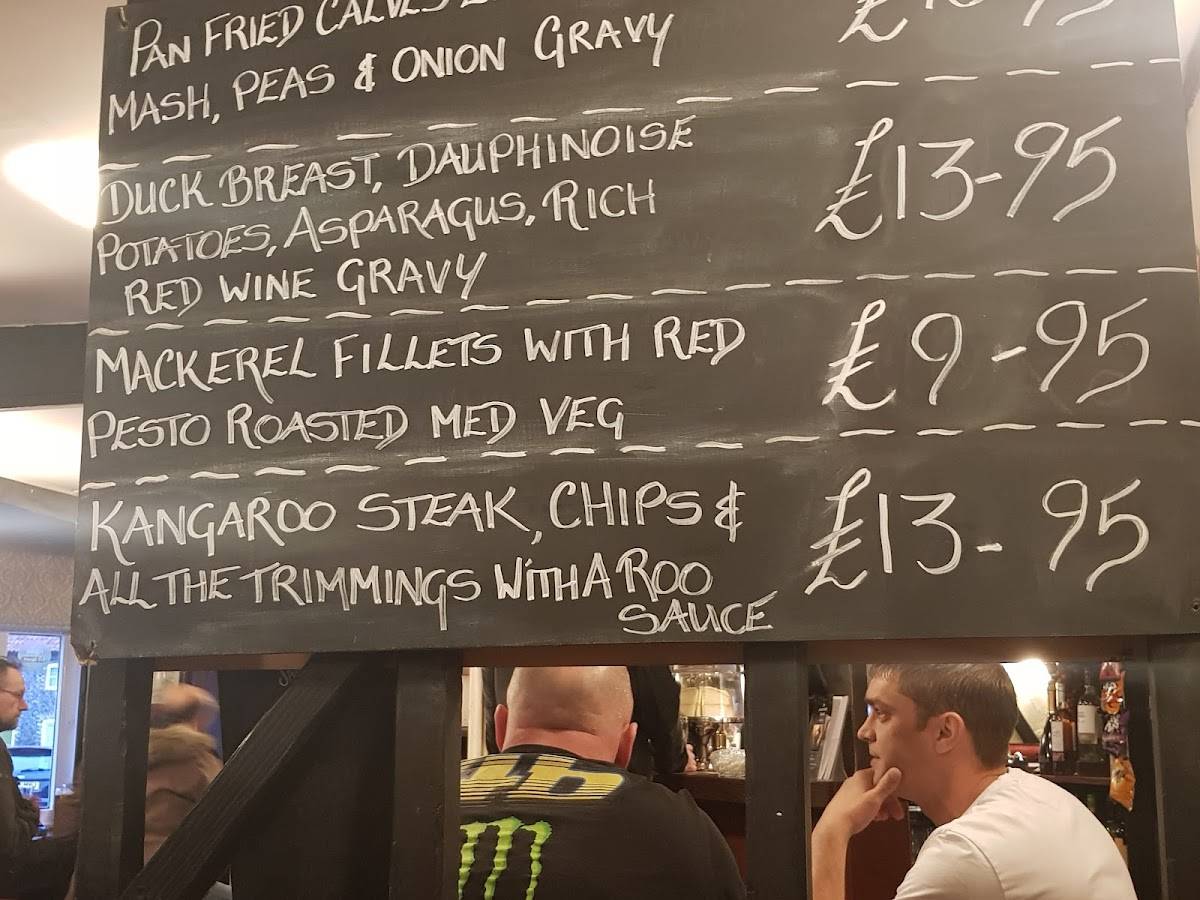 PAN FRIED CALVES
MASH, PEAS & ONION GRAVY
DUCK BREAST, DAUPHINOISE £13-95
POTATOES, ASPARAGUS, RICH
RED WINE GRAVY
MACKEREL FILLETS WITH RED £9-95
PESTO ROASTED MED VEG
KANGAROO STEAK, CHIPS & £13-95
ALL THE TRIMMINGS WITH A ROO
SAUCE